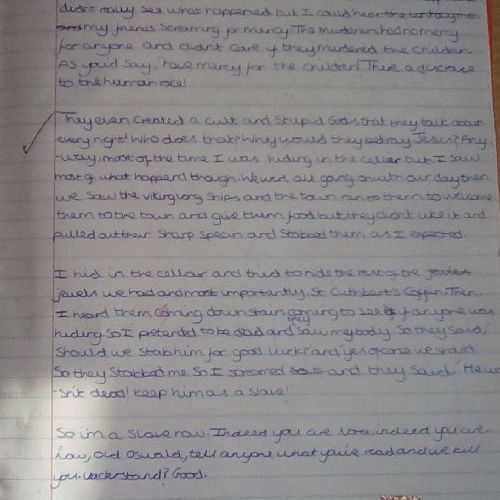 didn't really see what happened but I could hear
my friends screaming for mercy. The murderers had no mercy
for anyone and didnt care if they murdered the children.
As you'd say, have mercy for the children! There a disgrace
to the human race!
They even created a cult and stupid Gods that they talk about
every night! Who does that? Why would they betray Jesus? Any
-way, most of the time I was hiding in the cellar but I saw
most of what happend though. We were all going on with our day then
we saw the viking long ships and the town ran to them to welcome
them to the town and give them food but they didn't like it and
pulled out their sharp spears and stabbed them as I expected
I hid in the cellar and tried to hide the rest of the
jewels we had and most importantly, St Cuthbert's Coffin. Then
I heard them coming down stairs coming to see if anyone was
hiding so I pretended to be dead and they saw my body. So they said,
'Should we stab him for good luck?' and 'yes of corse we should
So they stabbed me so I screamed and they said, 'He wa
-sn't dead! Keep him as a slave!'
So im a slave now. Indeed you are now, indeed you are
now, old Oswald, tell anyone what you've read and we kill
you. Understand? Good.